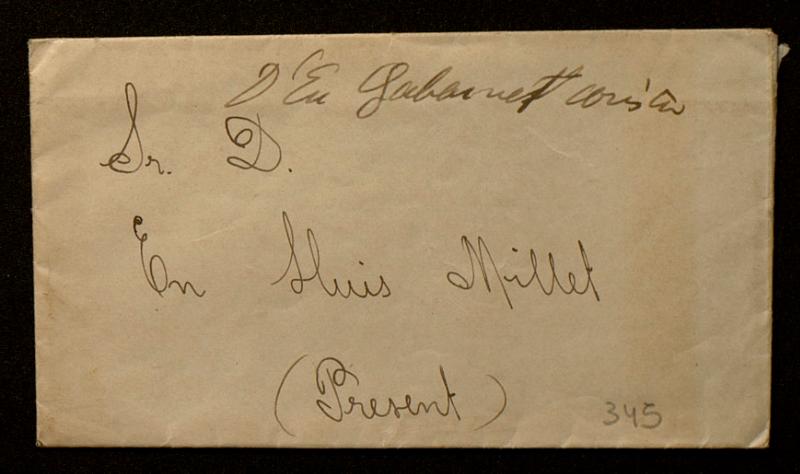 D'En Gabarnet corista
Sr. D.
En Lluis Millet
(Present)
345